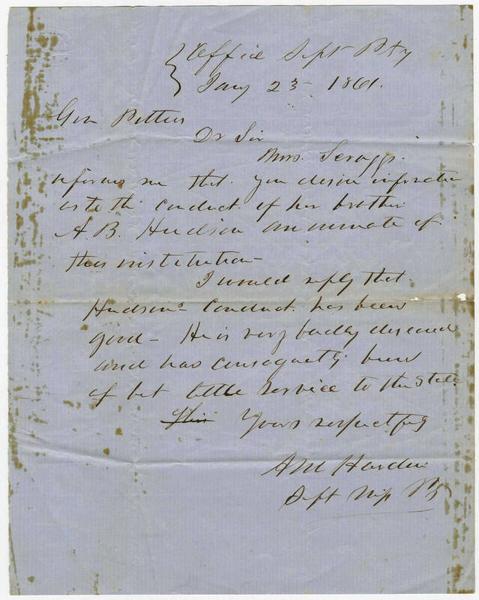 Office Supt Pty
Jany 23 - 1861.
Gov Pettus
Dr Sir
Mrs. Scraggs.
informs me that you desire information
as to the conduct of her brother
A B. Hudson an inmate of
this institution -
I would reply that
Hudsons conduct has been
good - He is very badly diseased
and has consequently been
of but little service to the State
Yours respectfuly
A M Hardin
Supt Miss Pty